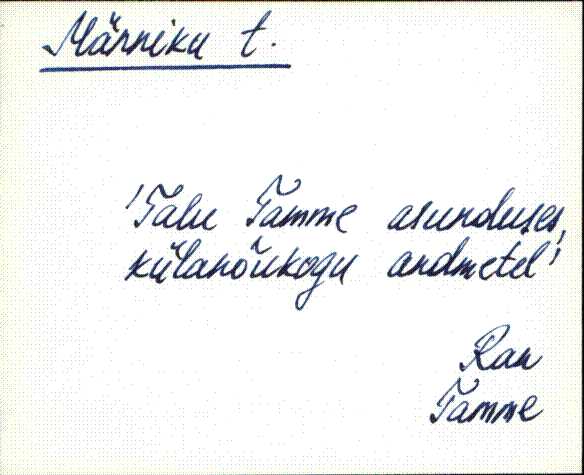 Männiku t.
'Talu Tamme asunduses,
külanõukogu andmetel'
Ran
Tamme